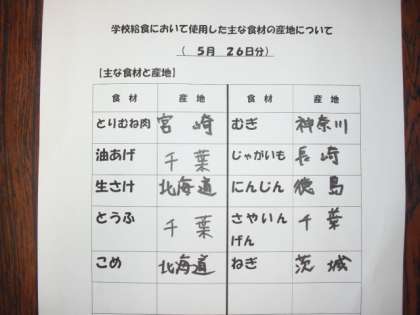 学校給食において使用した主な食材の産地について
（ 5月 26日分）
【主な食材と産地】
食材 産地 食材 産地
とりむね肉 宮崎 むぎ 神奈川
油あげ 千葉 じゃがいも 長崎
生さけ 北海道 にんじん 徳島
とうふ 千葉 さやいん
げん 千葉
こめ 北海道 ねぎ 茨城